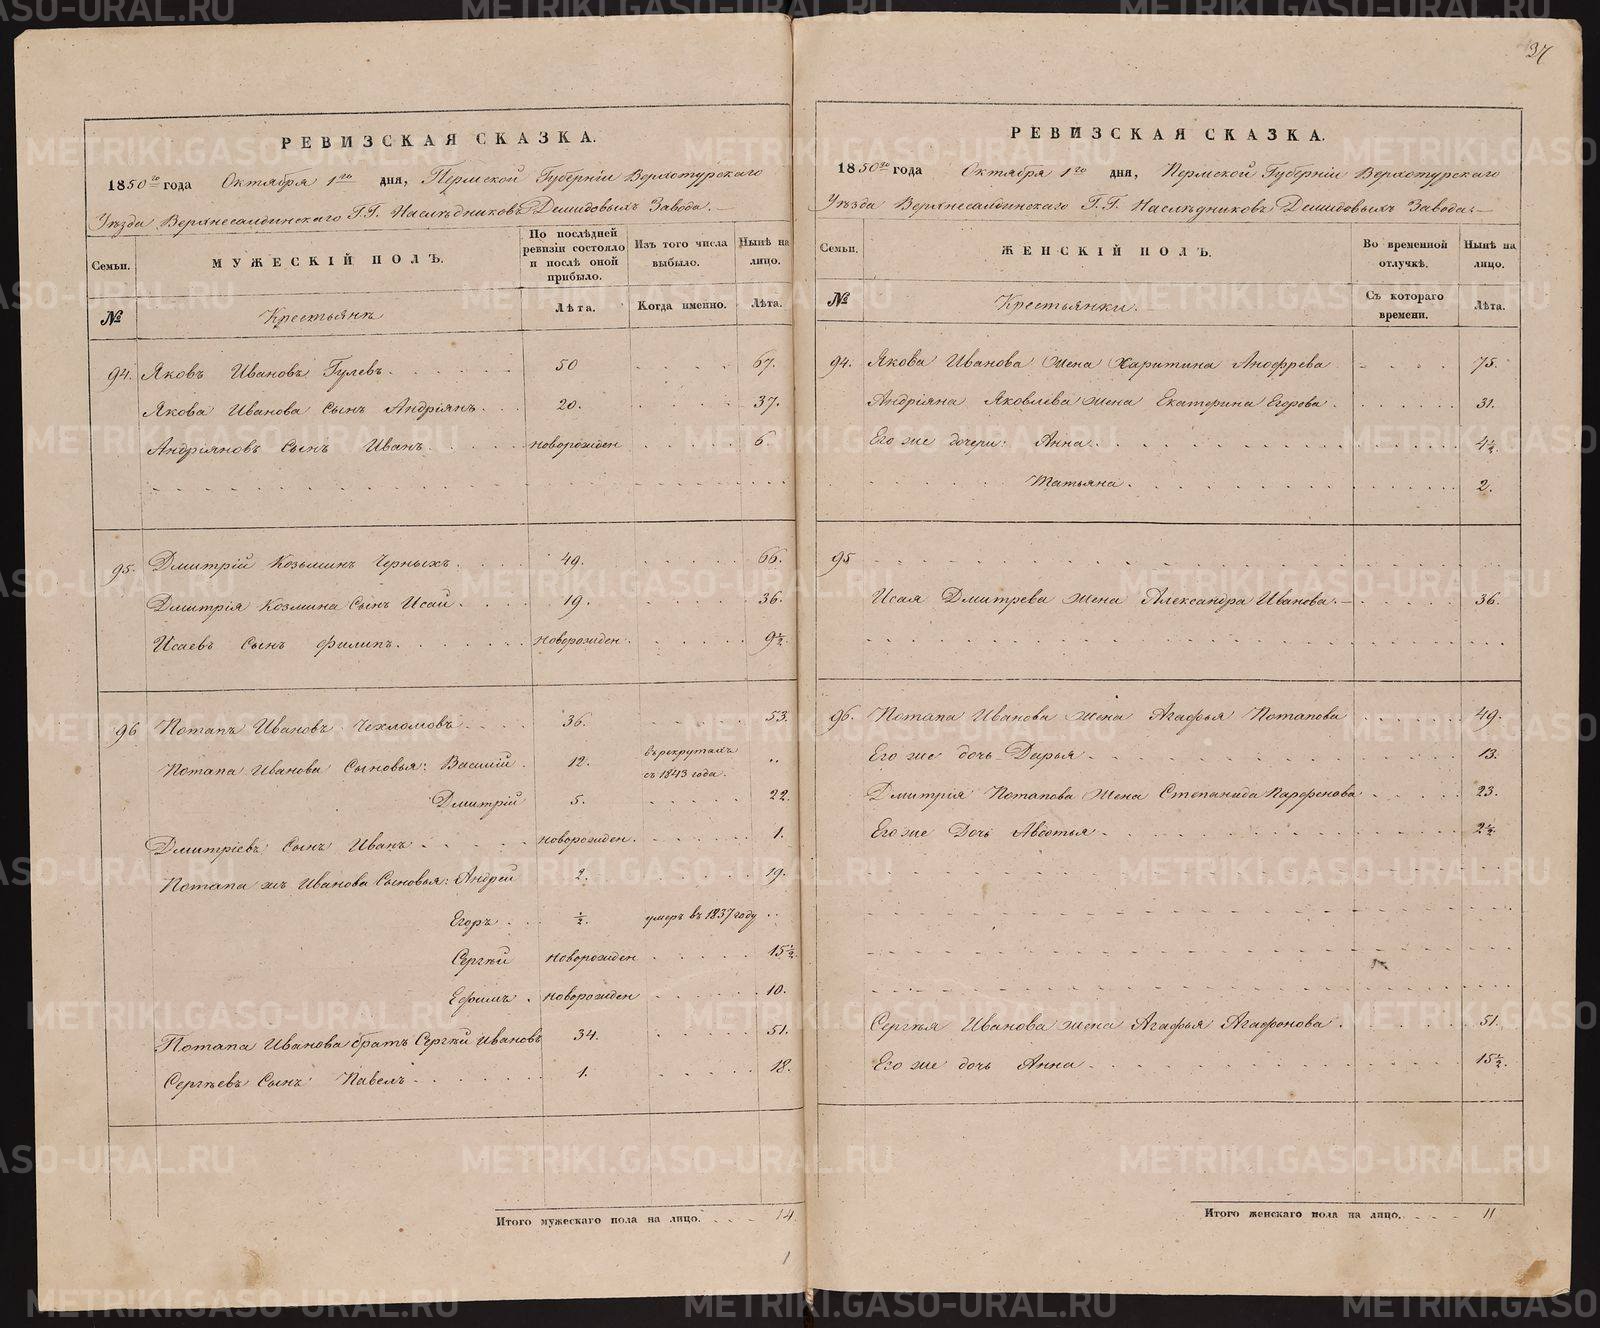 37
РЕВИЗСКАЯ СКАЗКА.
1850го года Октября 1го дня, Пермской Губерніи Верхотурскаго
Уѣзда Верхнесалдинскаго Г.Г. Наслѣдниковъ Демидовыхъ Завода.
Семьи.
МУЖЕСКІЙ ПОЛЪ.
По послѣдней ревизіи состояло и послѣ оной прибыло.
Изъ того числа выбыло.
Нынѣ на лицо.
№
Крестьянъ
Лѣта.
Когда именно.
Лѣта.
94. Яковъ Ивановъ Гулевъ. 50 67.
Якова Иванова Сынъ Андріянъ. 20. 37.
Андріяновъ Сынъ Иванъ новорожден 6.
95. Дмитрій Козьминъ Черныхъ. 49. 66.
Дмитрія Козмина Сынъ Исай. 19. 36.
Исаевъ Сынъ Филипъ. новорожден. 9½.
96 Потапъ Ивановъ Чехломовъ. 36. 53.
Потапа Иванова Сыновья: Василій. 12. въ рекрутахъ съ 1843 года.
Дмитрій 5. 22.
Дмитріевъ Сынъ Иванъ новорожден. 1.
Потапа жъ Иванова Сыновья: Андрей 2. 19.
Егоръ ½. умеръ въ 1837 году
Сергѣй новорожден 15½.
Ефимъ. новорожден 10.
Потапа Иванова братъ Сергѣй Ивановъ 34. 51.
Сергѣевъ Сынъ Павелъ 1. 18.
Итого мужескаго пола на лицо. 14.
1
РЕВИЗСКАЯ СКАЗКА.
1850го года Октября 1го дня, Пермской Губерніи Верхотурскаго
Уѣзда Верхнесалдинскаго Г.Г. Наслѣдниковъ Демидовыхъ Завода.
Семьи.
ЖЕНСКІЙ ПОЛЪ.
Во временной отлучкѣ.
Нынѣ на лицо.
№
Крестьянки.
Съ котораго времени.
Лѣта.
94. Якова Иванова Жена Харитина Анофрева 75.
Андріяна Яковлева жена Екатерина Егорова. 31.
Его же дочери: Анна. 4½.
Татьяна. 2.
95
Исая Дмитрева жена Александра Иванова. 36.
96. Потапа Иванова жена Агафья Потапова 49.
Его же дочь Дарья 13.
Дмитрія Потапова Жена Степанида Парфенова 23.
Его же Дочь Авдотья 2½.
Сергѣя Иванова жена Агафья Агафонова. 51.
Его же дочь Анна 15½.
Итого женскаго пола на лицо. 11
METRIKI.GASO-URAL.RU